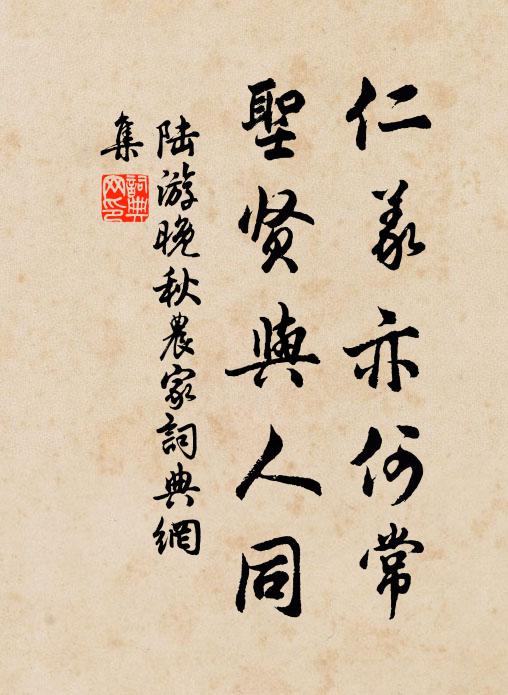 仁義亦何常
聖贤與人同
陆游晚秋農家詞典網
集
詞典
网印